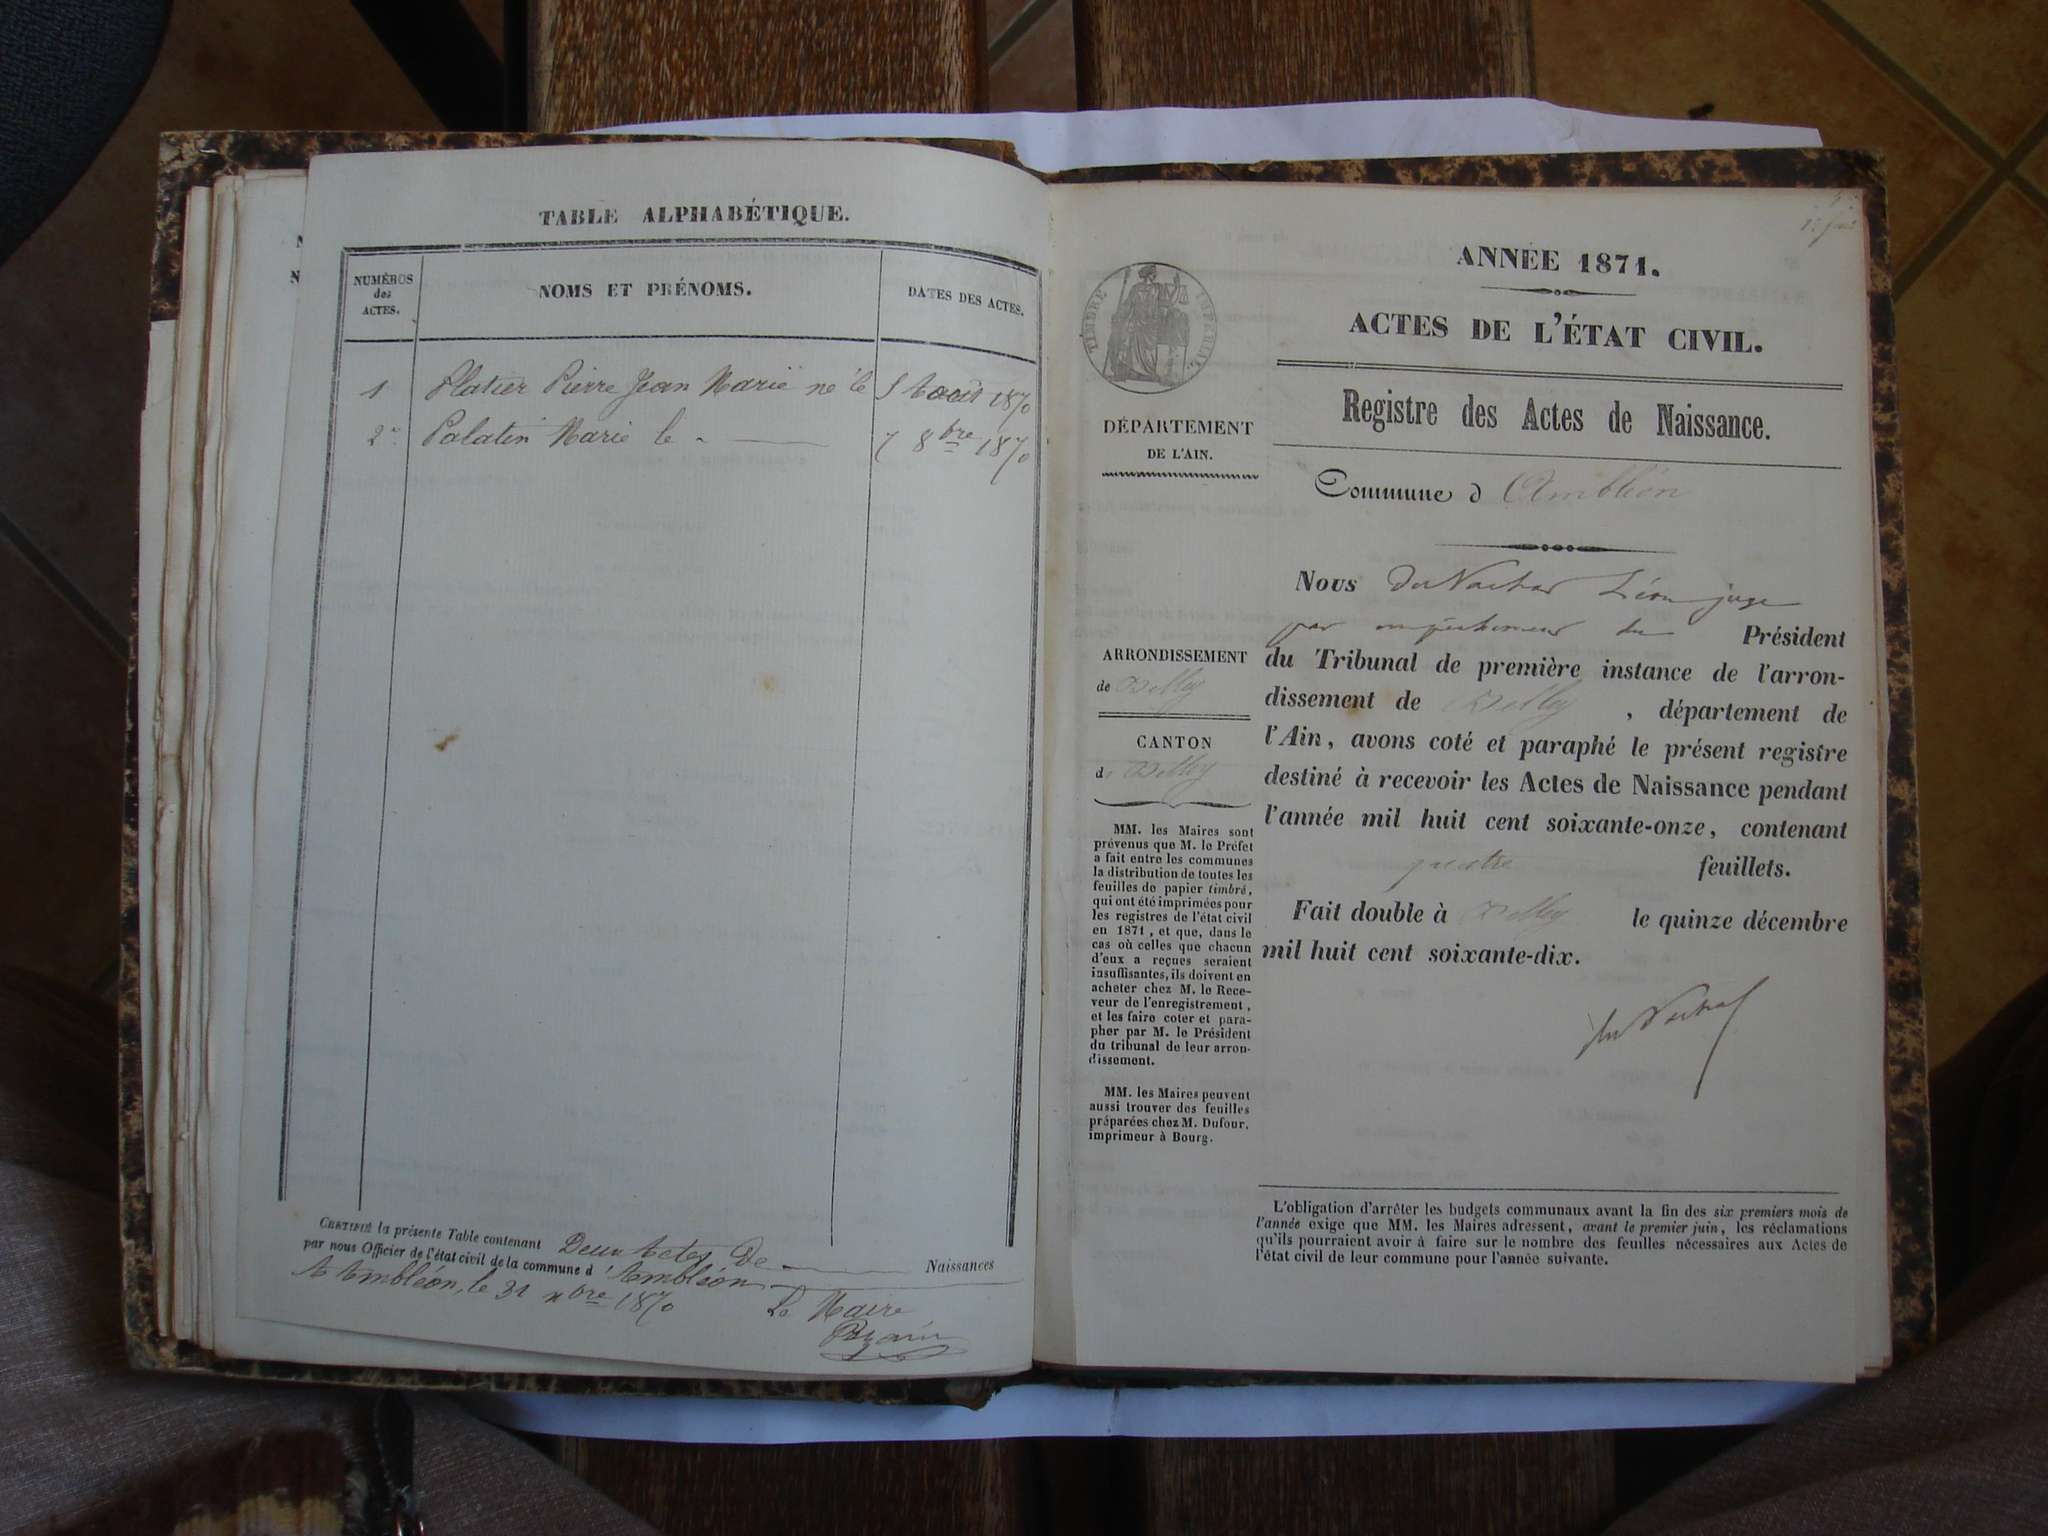 TABLE ALPHABÉTIQUE.
NUMÉROS
des
ACTES.
NOMS ET PRÉNOMS.
DATES DES ACTES.
1 Platier Pierre Jean Marie né le 5 Août 1870
2 Palatin Marie le 7 8bre 1870
CERTIFIÉ la présente Table contenant Deux Actes De Naissances
par nous Officier de l'état civil de la commune d'Ambléon
A Ambléon, le 31 xbre 1870 Le Maire
ANNÉE 1871.
ACTES DE L'ÉTAT CIVIL.
Registre des Actes de Naissance.
Commune d Ambléon
TIMBRE IMPÉRIAL
DÉPARTEMENT
DE L'AIN.
ARRONDISSEMENT
de Belley
CANTON
de Belley
MM. les Maires sont
prévenus que M. le Préfet
a fait entre les communes
la distribution de toutes les
feuilles de papier timbré,
qui ont été imprimées pour
les registres de l'état civil
en 1871, et que, dans le
cas où celles que chacun
d'eux a reçues seraient
insuffisantes, ils doivent en
acheter chez M. le Rece-
veur de l'enregistrement,
et les faire coter et para-
pher par M. le Président
du tribunal de leur arron-
dissement.
MM. les Maires peuvent
aussi trouver des feuilles
préparées chez M. Dufour,
imprimeur à Bourg.
Nous Léon juge
par empêchement du Président
du Tribunal de première instance de l'arron-
dissement de Belley, département de
l'Ain, avons coté et paraphé le présent registre
destiné à recevoir les Actes de Naissance pendant
l'année mil huit cent soixante-onze, contenant
quatre feuillets.
Fait double à Belley le quinze décembre
mil huit cent soixante-dix.
L'obligation d'arrêter les budgets communaux avant la fin des six premiers mois de
l'année exige que MM. les Maires adressent, avant le premier juin, les réclamations
qu'ils pourraient avoir à faire sur le nombre des feuilles nécessaires aux Actes de
l'état civil de leur commune pour l'année suivante.